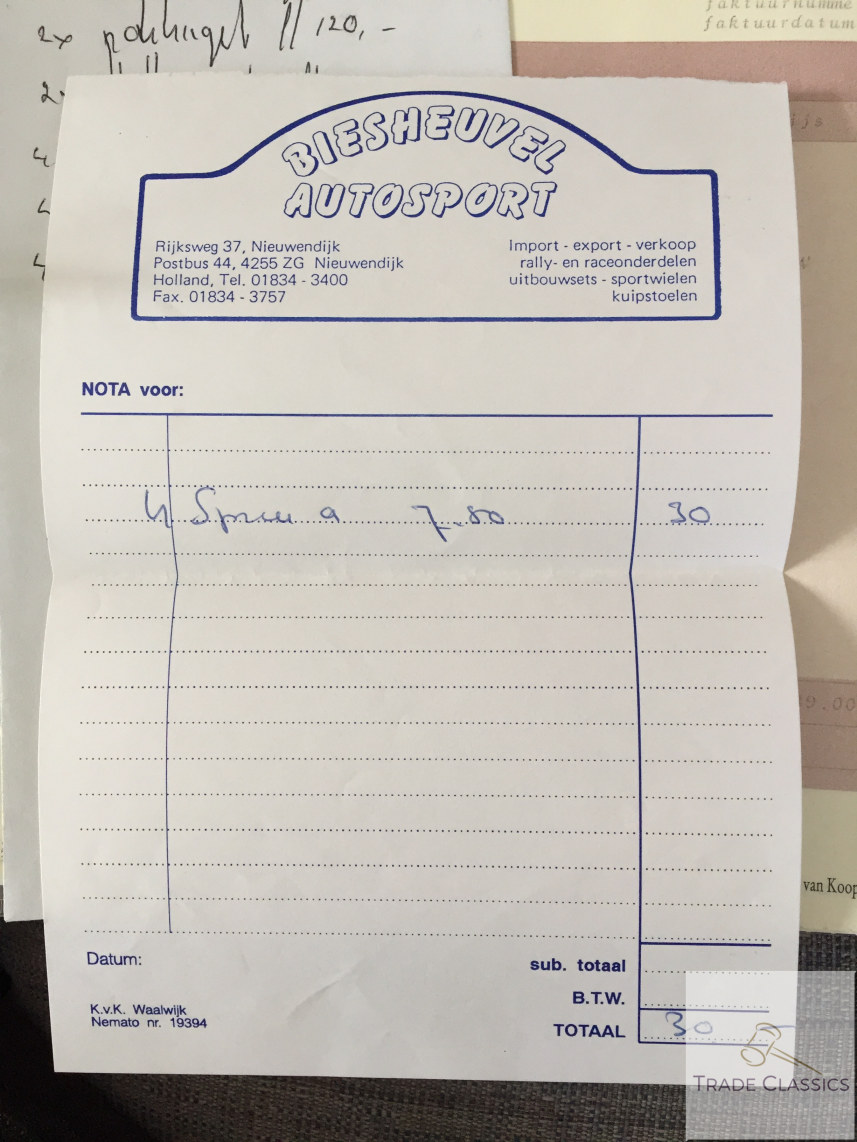 2x // 120,-
faktuurdatum
BIESHEUVEL
AUTOSPORT
Rijksweg 37, Nieuwendijk
Postbus 44, 4255 ZG Nieuwendijk
Holland, Tel. 01834 - 3400
Fax. 01834 - 3757
Import - export - verkoop
rally- en raceonderdelen
uitbouwsets - sportwielen
kuipstoelen
NOTA voor:
4 a 7.50 30
9.00
van Koop
Datum:
sub. totaal
B.T.W.
TOTAAL 30
K.v.K. Waalwijk
Nemato nr. 19394
TRADE CLASSICS